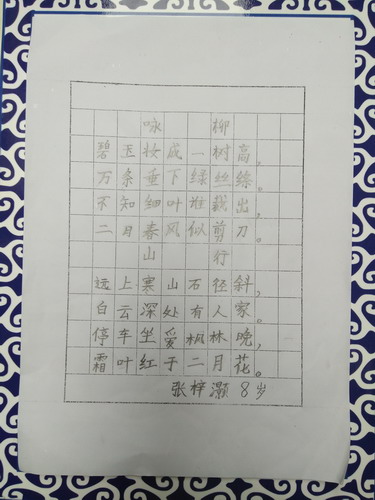 咏柳
碧玉妆成一树高,
万条垂下绿丝绦。
不知细叶谁裁出,
二月春风似剪刀。
山行
远上寒山石径斜,
白云深处有人家。
停车坐爱枫林晚,
霜叶红于二月花。
张梓灏 8岁